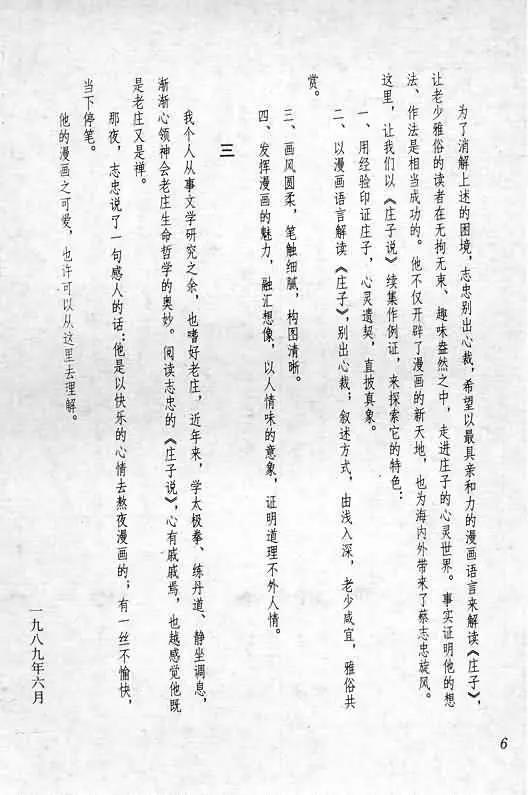 为了消解上述的困境，志忠别出心裁；希望以最具亲和力的漫画语言来解读《庄子》，
让老少雅俗的读者在无拘无束、趣味盎然之中，走进庄子的心灵世界。事实证明他的想
法、作法是相当成功的。他不仅开辟了漫画的新天地，也为海内外带来了蔡志忠旋风。
这里，让我们以《庄子说》续集作例证，来探索它的特色：
一、用经验印证庄子，心灵遗契，直披真象。
二、以漫画语言解读《庄子》，别出心裁；叙述方式，由浅入深，老少咸宜，雅俗共
赏。
三、画风圆柔，笔触细腻，构图清晰。
四、发挥漫画的魅力，融汇想像，以人情味的意象，证明道理不外人情。
三
我个人从事文学研究之余，也嗜好老庄，近年来，学太极拳、练丹道、静坐调息，
渐渐心领神会老庄生命哲学的奥妙。阅读志忠的《庄子说》，心有戚戚焉，也越感觉他既
是老庄又是禅。
那夜，志忠说了一句感人的话：他是以快乐的心情去熬夜漫画的；有一丝不愉快，
当下停笔。
他的漫画之可爱，也许可以从这里去理解。
一九八九年六月
6